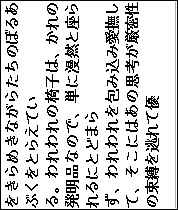 をきらめきながらたちのぼるあ
ぶくをとらえてい
る。われわれの椅子は、かれの
発明品なので、単に漫然と座ら
れるにとどまら
ず、われわれを包み込み愛撫し
て、そこにはあの思考が厳密性
の束縛を逃れて優